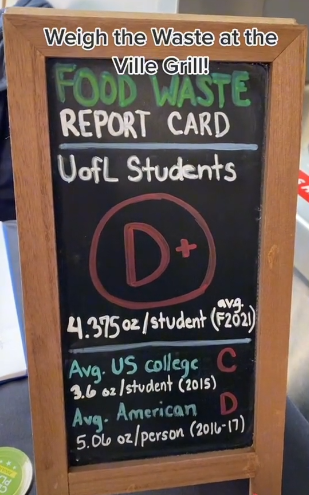 Weigh the Waste at the
Ville Grill!
FOOD WASTE
REPORT CARD
UofL Students
D+
avg.
4.375oz/student (F2021)
Avg. US college C
3.6 oz/student (2015)
Avg. American D
5.06 oz/person (2016-17)